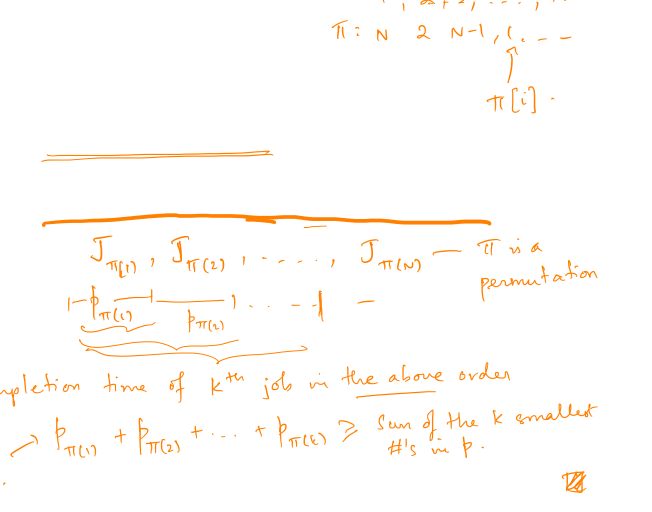 π: N 2 N-1, 1, - -
π[i].
J_π(1), J_π(2), ....., J_π(N) — π is a
permutation
p_π(1) p_π(2) . . . -
completion time of kth job in the above order
→ p_π(1) + p_π(2) + ... + p_π(k) ≥ Sum of the k smallest
#'s in p.